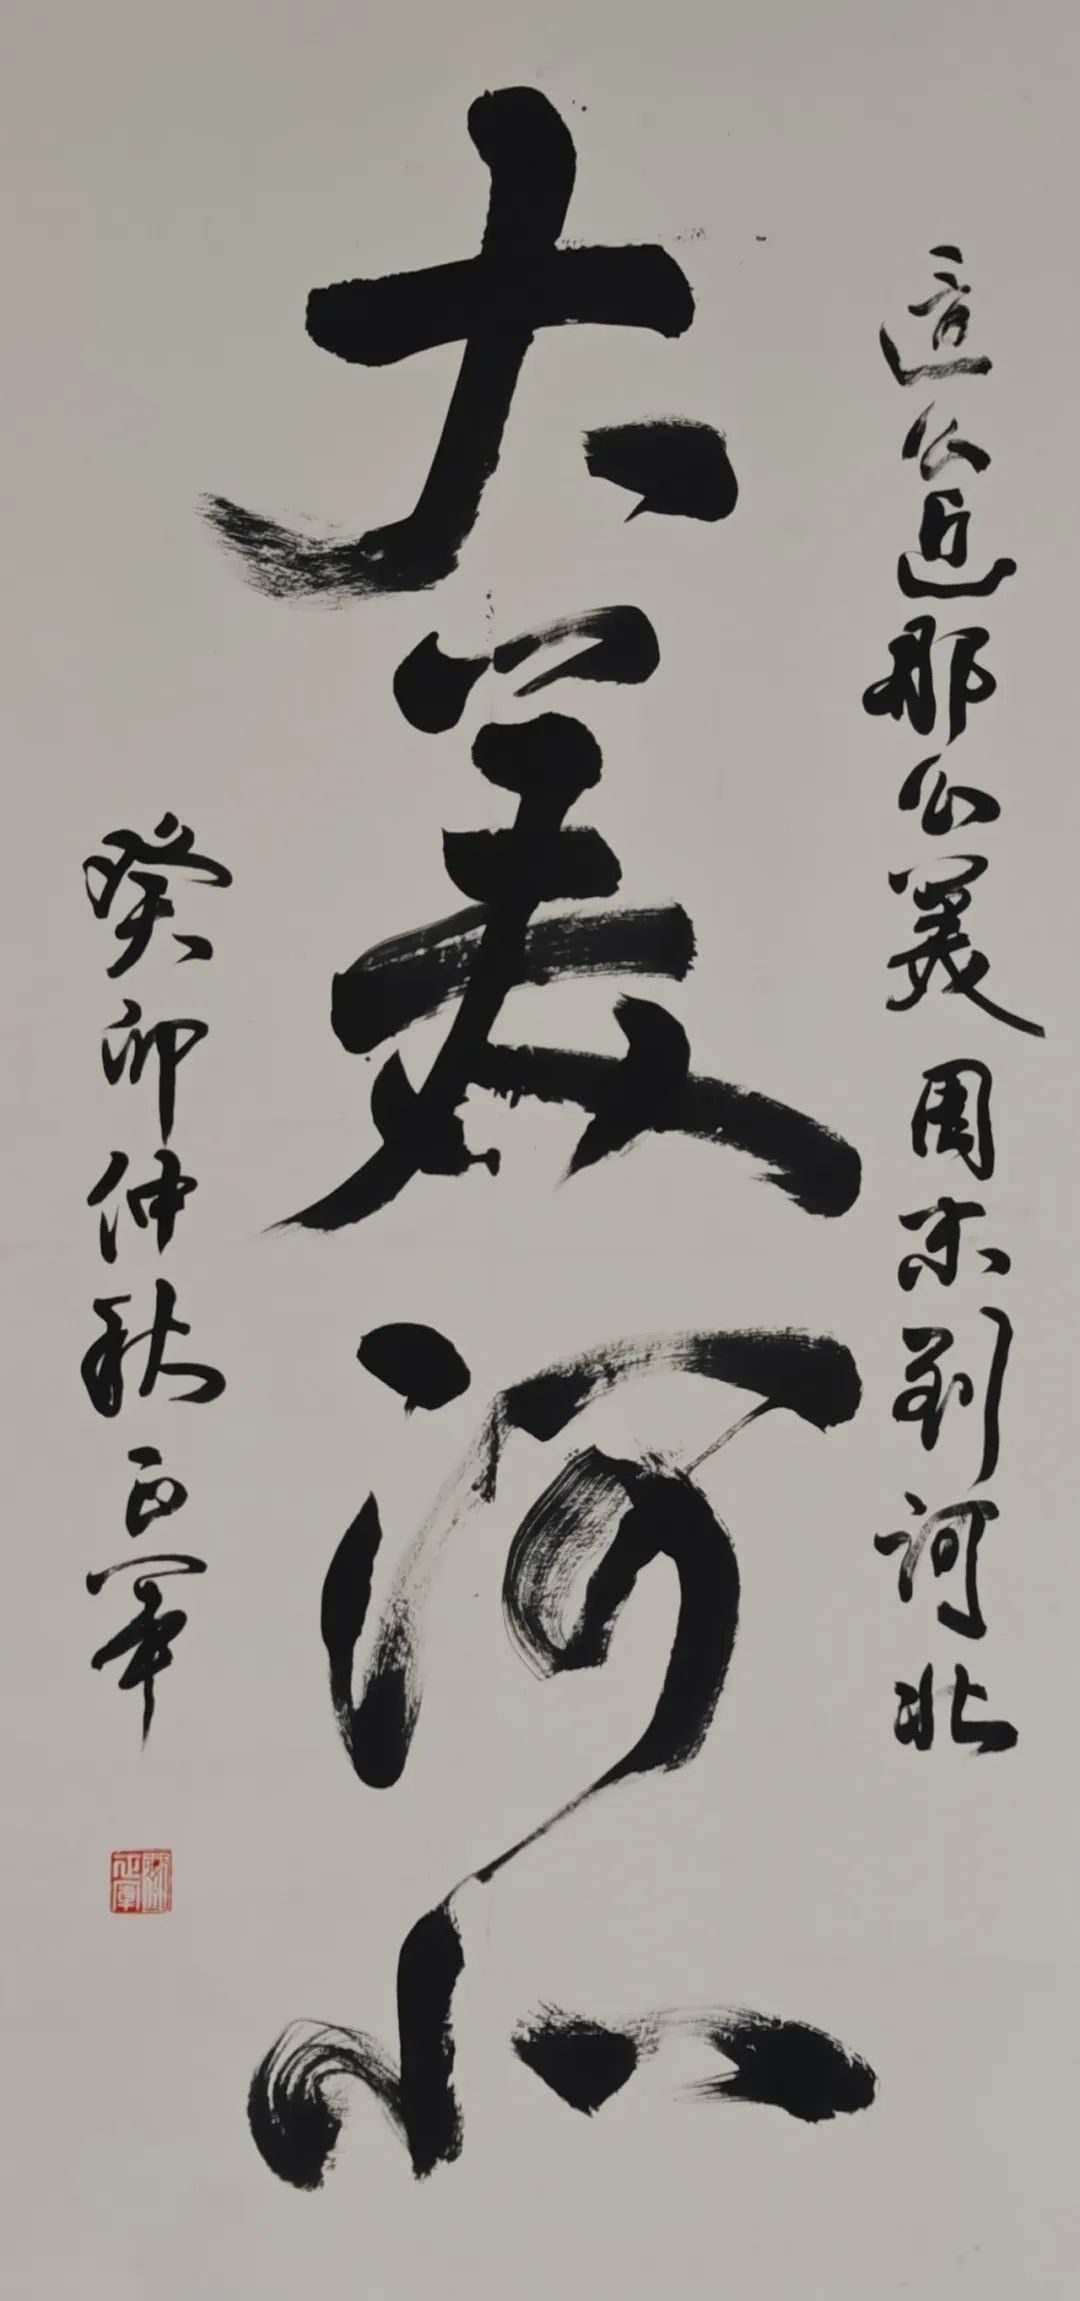 這么近那么美周末到河北
大美河北
癸卯仲秋正军